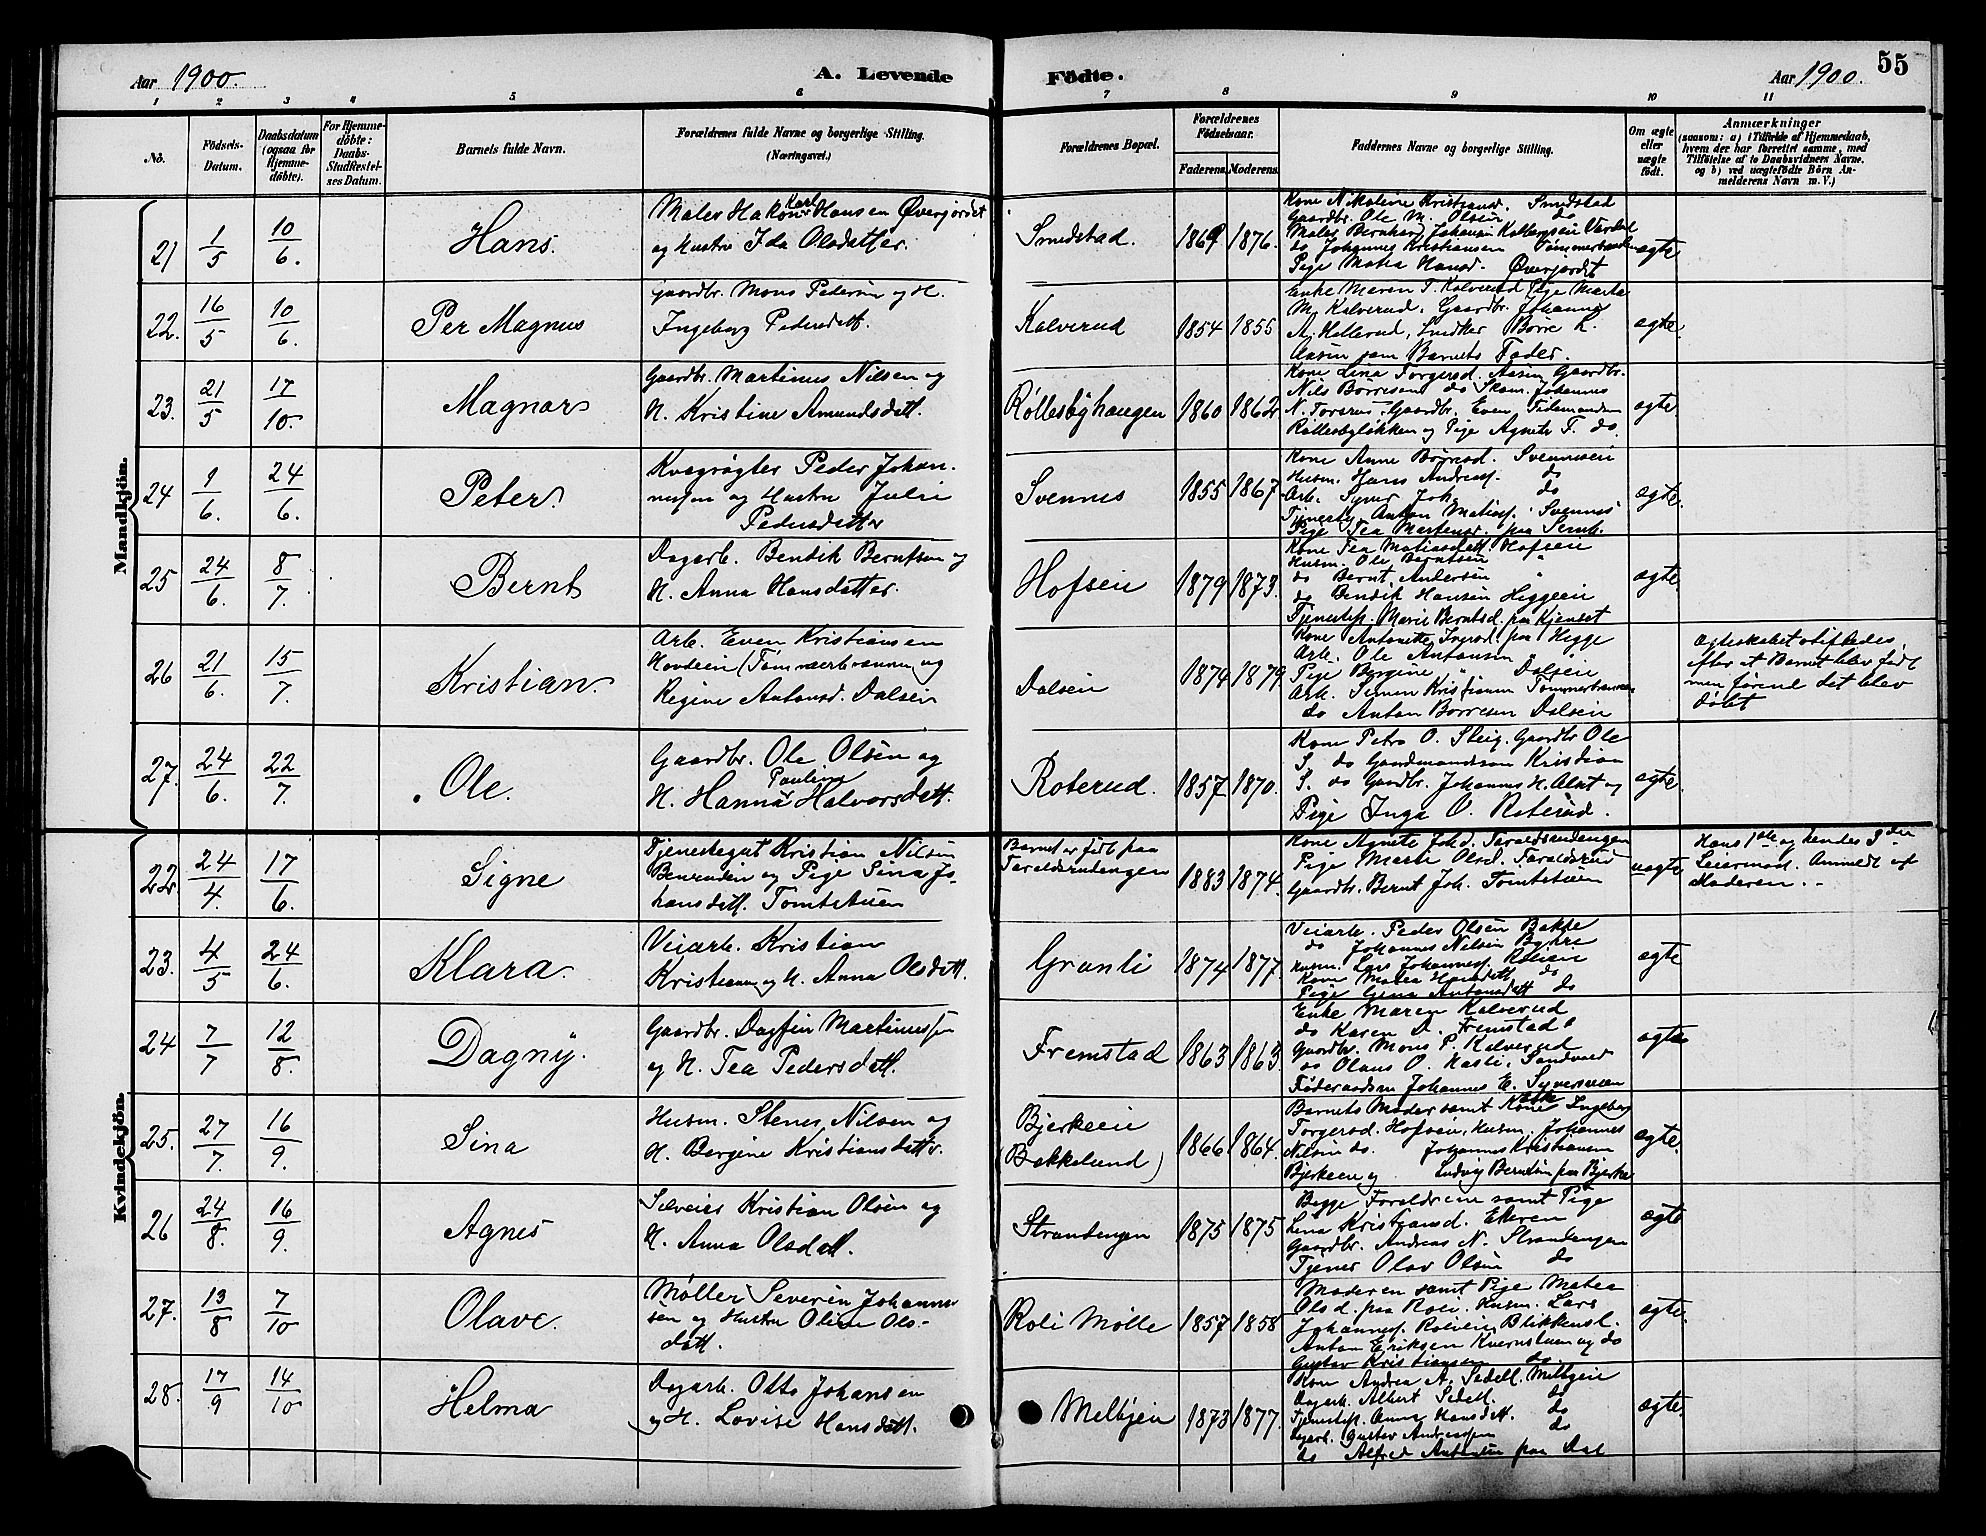 Aar 1900. A. Levende Födte. Aar 1900. 55
1 2 3 4 5 6 7 8 9 10 11
No. Födsels-Datum. Daabsdatum (ogsaa for Hjemmedöbte). For Hjemmedöbte: Daabs-Stadfæstelses Datum. Barnets fulde Navn. Forældrenes fulde Navne og borgerlige Stilling. (Næringsvei.) Forældrenes Bopæl. Forældrenes Födselsaar. Faderens. Moderens. Faddernes Navne og borgerlige Stilling. Om ægte eller uægte födt. Anmærkninger (saasom: a) i Tilfælde af Hjemmedaab, hvem der har forrettet samme, med Tilföielse af to Daabsvidners Navne. og b) ved uægtefödte Börn Anmelderens Navn m. V.)
Mandkjön.
21 1/5 10/6. Hans. Maler Hakon Karl Hansen Øverjordet
og Hustru Ida Olsdatter. Smedstad. 1869 1876. ægte
Kone Nikoline Kristiansd. Smedstad
Gaardbr. Ole M. Olsen do
Maler Bernhard Johansen
do Johannes Kristiansen
Pige Matea Hansd. Øverjordet
22. 16/5 10/6. Per Magnus Gaardbr. Mons Pedersen og H.
Ingeborg Pedersdatt. Kalverud 1854 1855 ægte.
Enke Maren T. Kalverud Pige Marta
M. Kalverud. Gaardbr. Johannes
A. Kallerud, Snedker Børre L.
Aasen som Barnets Fader.
23. 21/5 17/10. Magnar Gaardbr. Martinus Nilsen og
H. Kristine Amundsdatt. Røllesbyhaugen 1860 1862 ægte
Kone Lina Torgersd. Aasen Gaardbr.
Nils Børresen do Skom. Johannes
N. Gaardbr. Even Tidemandsen
Røllesbyløkken og Pige Agnete T. do
24 9/6. 24/6. Peter. Kvægrøgter Peder Johan-
nessen og Hustru Julie
Pedersdatter Svennes 1855 1867 ægte.
Kone Anne Børresd. Svenneseie
Husm. Hans Andreass. do
Arb. Syver Joh. do
Tjenestg. Anton Matiass. Svennes
Pige Tea Martensd. paa
25 24/6. 8/7. Bernt Dagarb. Bendik Berntsen og
H. Anna Hansdatter. Hofseie 1879 1873. ægte.
Kone Tea Matiasdatt. Hofseie
Husm. Ole Berntsen "
do Bernt Andersen "
do Bendik Hansen Higgeeie
Tjenestep. Marie Berntsd. paa Kjendset
26 21/6. 15/7. Kristian. Arb. Even Kristiansen
Hovdeeie (Tømmerbraaten) og
Regine Antonsd. Dalseie Dalseie 1874 1879 ægte
Kone Antonette paa Higge
Arb. Ole Antonsen "
Pige Bergine " Dalseie
Arb. Simen Kristiansen
do Anton Børresen Dalseie
Ægteskabet stiftedes
efter at Barnet blev født
men førend det blev
døbt
27. 24/6. 22/7. Ole. Gaardbr. Ole Olsen og
H. Hanna Pauline Halvorsdatt. Roterud. 1857 1870. ægte
Kone Petra O. Steig. Gaardbr Ole
S. do Gaardmandssøn Kristian
S. do Gaardbr. Johannes H. Alset og
Pige Inga O. Roterud.
Kvindekjön.
22. 24/4. 17/6. Signe Tjenestegut Kristian Nilsen
Benruden og Pige Sina Jo-
hansdatt. Tomtstuen Barnet er født paa
Taraldsrudengen 1883 1874. uægte
Kone Agnete Johd. Taraldsrudengen
Pige Marte Olsd. Taraldsrud
Gaardbr. Bernt Joh. Tomtstuen
Hans 1ste og hendes 3die
Leiermaal. Anmeldt af
Moderen.
23. 4/5 24/6. Klara. Veiarb. Kristian
Kristiansen og H. Anna Olsdatt. Granli 1874 1877. ægte
Veiarb. Peder Olsen Bakke
do Johannes Nilsen
Husm. Lars Johanness. Rolieie
Kone Matea Hansdatt do
Pige Gina Antonsdatt do
24 7/7 12/8. Dagny. Gaardbr. Dagfin Martinussen
og H. Tea Pedersdatt. Fremstad 1863 1863. ægte
Enke Maren Kalverud
do Karen D. Fremstad
Gaardbr. Mons P. Kalverud
do Olaus O. Sandvold
Føderaadsm Johannes E. Syversveen
25. 27/7. 16/9. Sina Husm. Stener Nilsen og
H. Bergine Kristiansdatter. Bjerkeeie
(Bakkelund) 1866 1864. ægte.
Barnets Moder samt Kone Ingeborg
Torgersd. Hofseie, Husm. Johannes
Nilsen do. Johannes Kristiansen
Bjerkeeie og Ludvig Berntsen paa Bjerke
26 24/8. 16/9. Agnes Kristian Olsen og
H. Anna Olsdatt. Strandengen 1875 1875 ægte
Begge Forældrene samt Pige
Lina Kristiansd. Ekeren
Gaardbr. Andreas N. Strandengen
Tjener Olav Olsen do
27. 13/8 7/10 Olave. Møller Severin Johannes-
sen og Hustru Oline Ols-
datt. Roli Mølle 1857 1858 ægte.
Moderen samt Pige Matea
Olsd. paa Roli. Husm. Lars
Johanness. Rolieie, Blikkensl.
Anton Eriksen Kvernstuen og do
Gustav Kristiansen do
28. 17/9 14/10 Helma Dagarb. Otto Johansen
og H. Lovise Hansdatt. Melbyeie 1873 1877. ægte.
Kone Andrea A. Melbyeie
Dagarb. Albert do
Tjenestep. Anna Hansdatt. do
Dagarb. Gustav Andreassen do
do Alfred Antonsen paa Dal